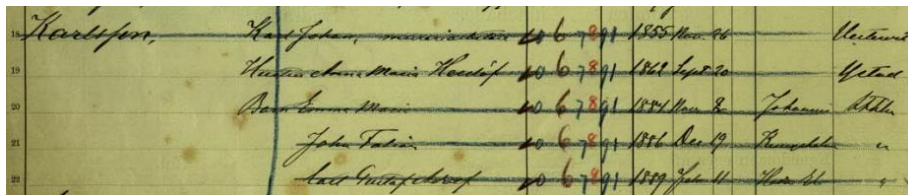 18 Karlsson, Karl Johan, 10 6 7 8 91 1855 Nov. 26
19 Hustru Anna Maria Hesslöf 10 6 7 8 91 1862 Sept 20 Ystad
20 Barn Emma Maria 10 6 7 8 91 1884 Nov. 2 Johannis Sthlm
21 John Fabian 10 6 7 8 91 1886 Dec 19 Kungsholm "
22 Carl Gustaf 10 6 7 8 91 1889 "